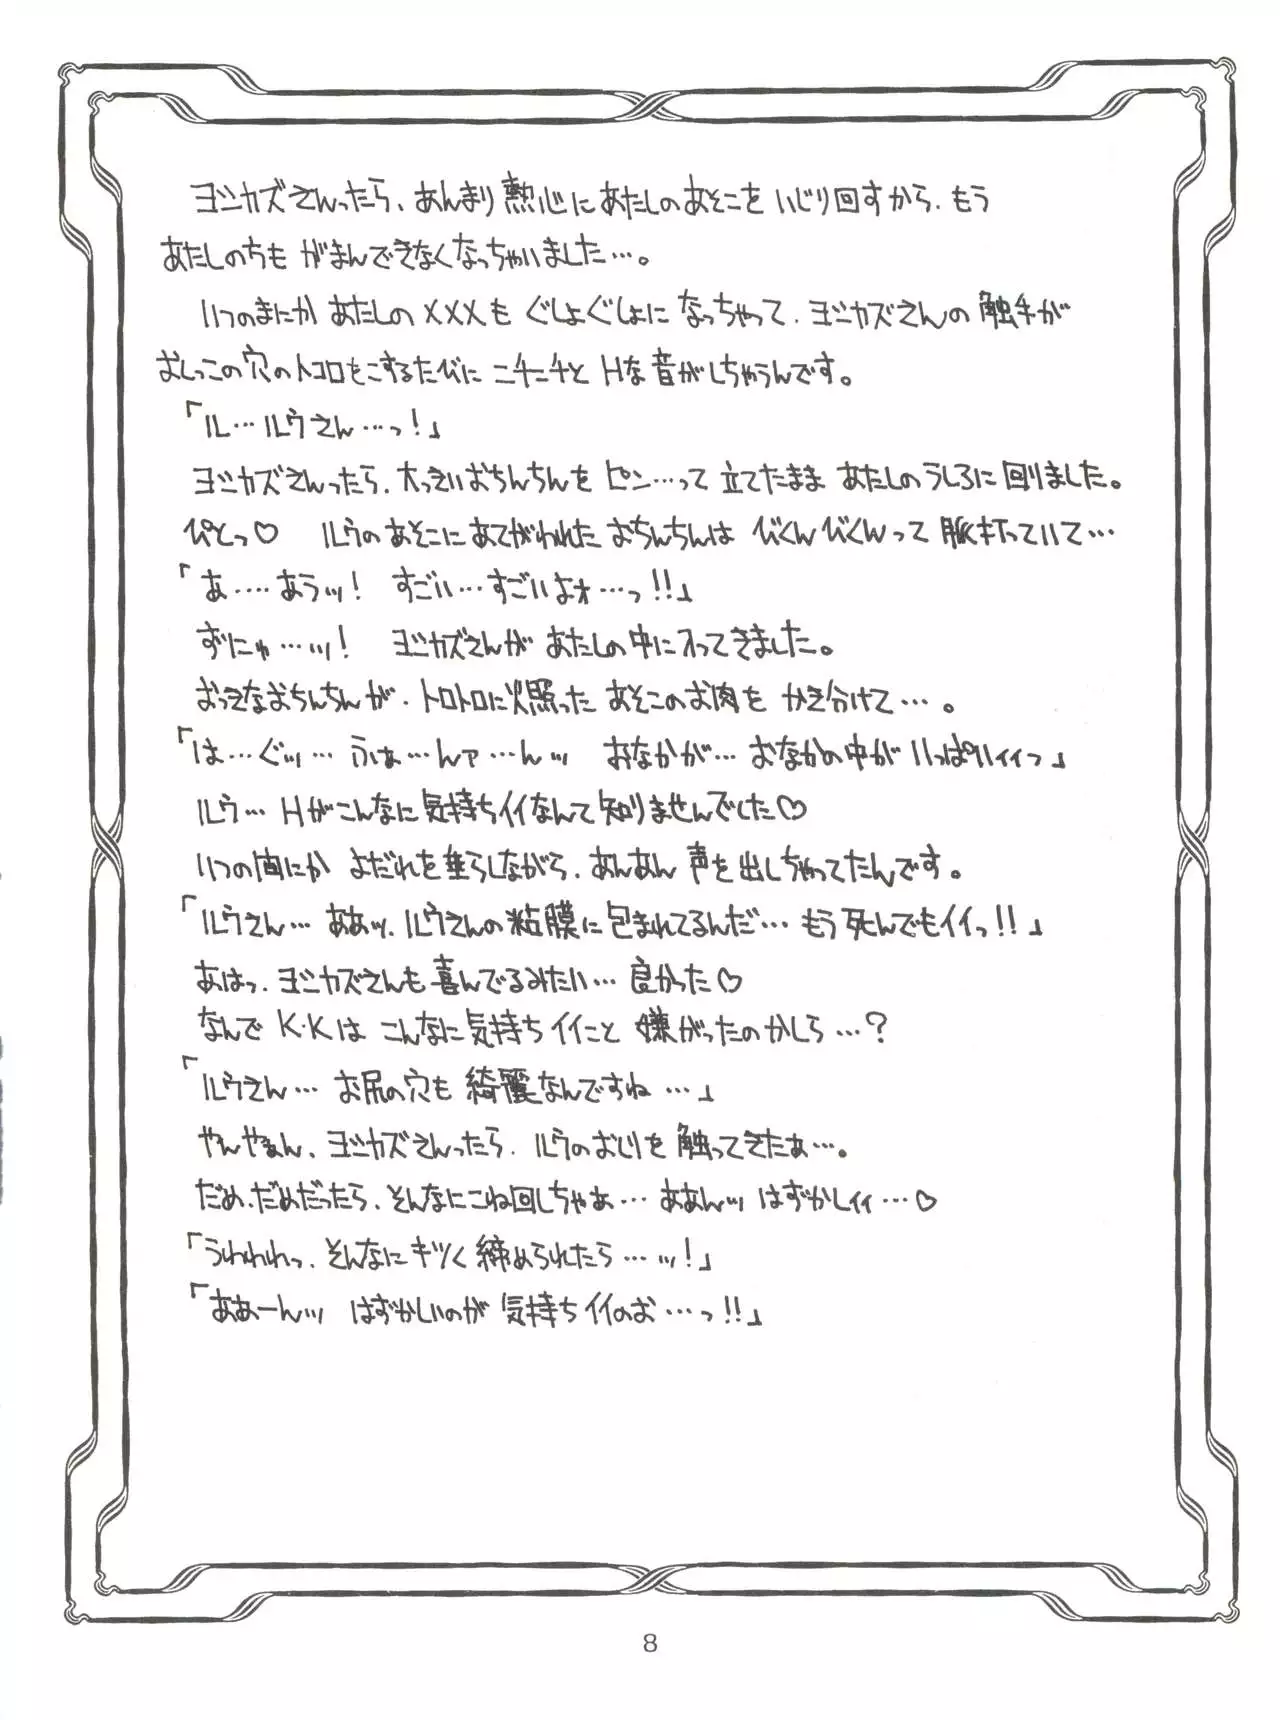 ヨシカズさんったら、あんまり熱心にあたしのあそこをいじり回すから、もう
あたしのちもがまんできなくなっちゃいました…。
いつのまにかあたしのXXXもぐしょぐしょになっちゃって、ヨシカズさんの触手が
おしっこの穴のトコロをこするたびにニチニチとHな音がしちゃうんです。
「ル…ルウさん…っ!」
ヨシカズさんったら、大っきいおちんちんをピン…って立てたままあたしのうしろに回りました。
ぴとっ♡ ルウのあそこにあてがわれたおちんちんはびくんびくんって脈打っていて…
「あ‥‥あうッ! すごい…すごいよォ…っ!!」
ずにゅ…ッ! ヨシカズさんがあたしの中に入ってきました。
おっきなおちんちんが、トロトロに火照ったあそこのお肉をかき分けて…。
「は…ぐッ…ふぁ…んァ…んッ おなかが…おなかの中がいっぱいィィっ」
ルウ…Hがこんなに気持ちイイなんて知りませんでした♡
いつの間にかよだれを垂らしながら、あんあん声を出しちゃってたんです。
「ルウさん…ああッ、ルウさんの粘膜に包まれてるんだ…もう死んでもイイっ!!」
あはっ、ヨシカズさんも喜んでるみたい…良かった♡
なんでK.Kはこんなに気持ちイイこと嫌がったのかしら…?
「ルウさん…お尻の穴も綺麗なんですね…」
やんやぁん、ヨシカズさんったら、ルウのおしりを触ってきたぁ…。
だめ、だめだったら、そんなにこね回しちゃぁ…ああんッ はずかしィィ…♡
「うわわわっ、そんなにキツく締められたら…ッ!」
「ああーんッ はずかしいのが気持ちイイのお…っ!!」
8